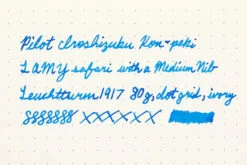 Pilot Iroshizuku Kon-peki
LAMY safari with a Medium Nib
Leuchtturm 1917 80g, dot grid, ivory